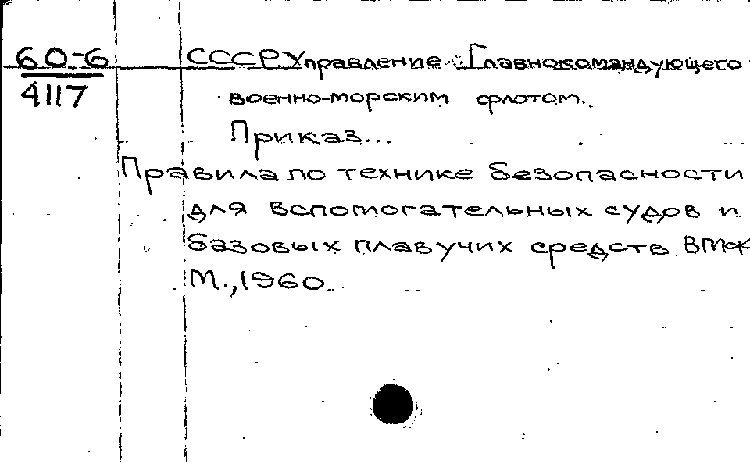 60-6
4117
СССР Управление Главнокомандующего
военно-морским флотом.
Приказ...
Правила по технике безопасности
для вспомогательных судов и
базовых плавучих средств ВМФ
М., 1960